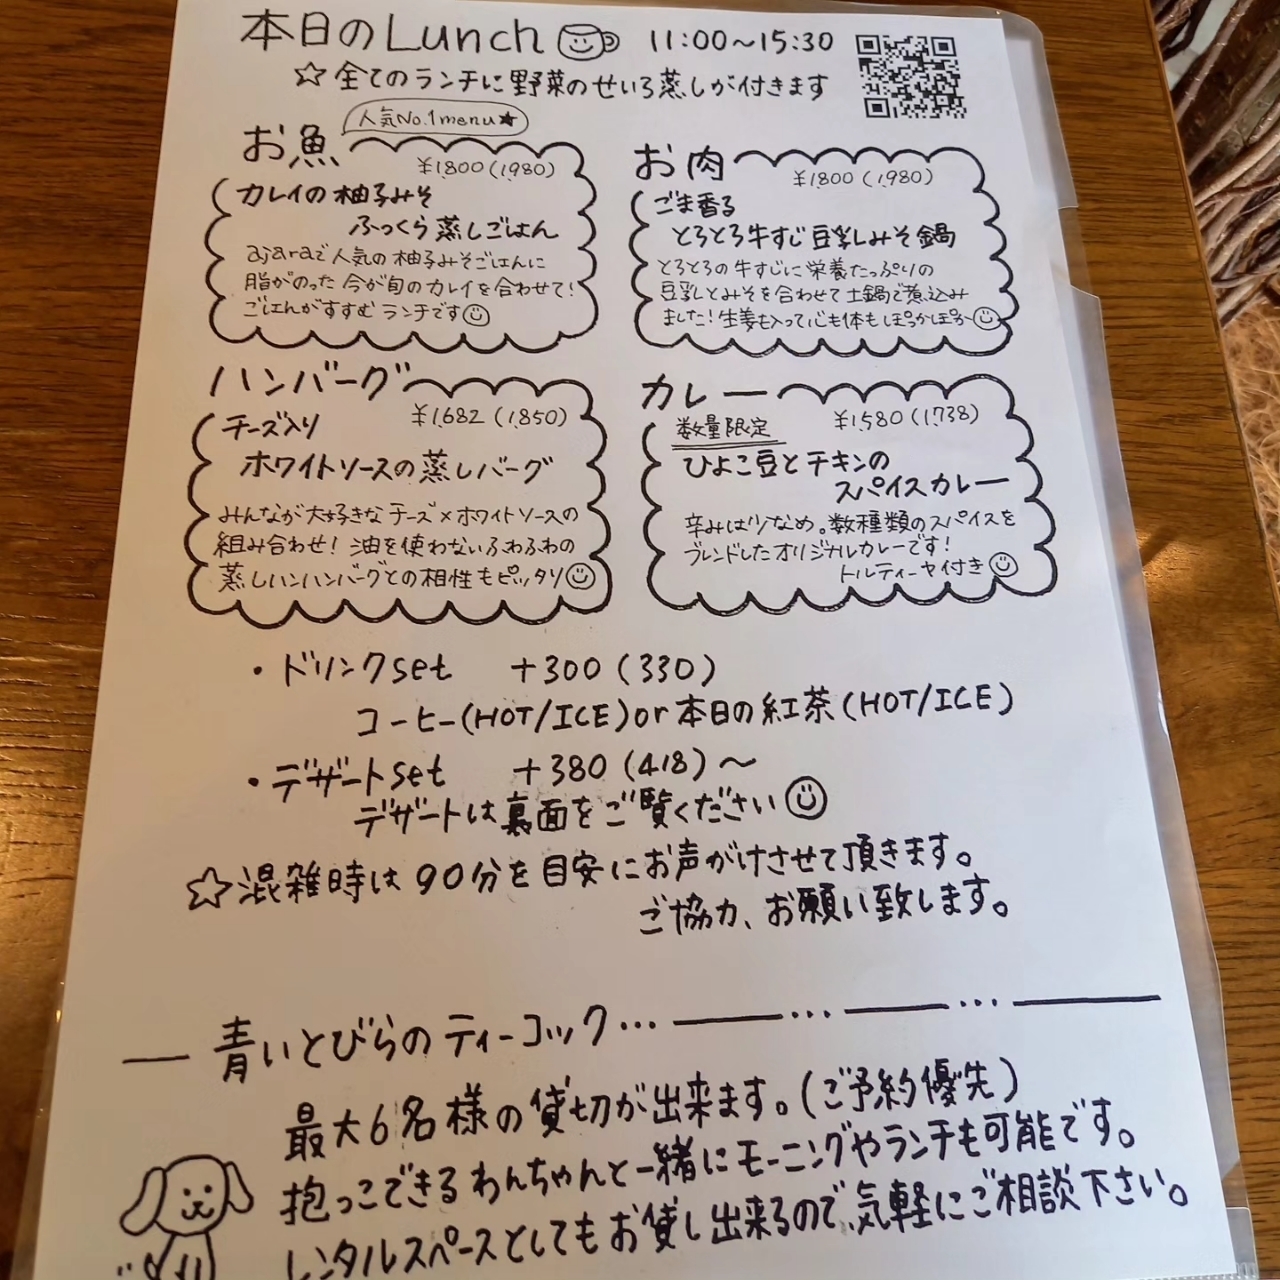 本日のLunch 11:00～15:30
☆全てのランチに野菜のせいろ蒸しが付きます
人気No.1menu★
お魚
¥1,800(1,980)
カレイの柚子みそ
ふっくら蒸しごはん
ajaraで人気の柚子みそごはんに
脂がのった今が旬のカレイを合わせて!
ごはんがすすむランチです
お肉
¥1,800(1,980)
ごま香る
とろとろ牛すじ豆乳みそ鍋
とろとろの牛すじに栄養たっぷりの
豆乳とみそを合わせて土鍋で煮込み
ました!生姜も入って心も体もぽっかぽっか
ハンバーグ
¥1,682(1,850)
チーズ入り
ホワイトソースの蒸しバーグ
みんなが大好きなチーズ×ホワイトソースの
組み合わせ!油を使わないふわふわの
蒸しハンハンバーグとの相性もピッタリ
カレー
数量限定
¥1,580(1,738)
ひよこ豆とチキンの
スパイスカレー
辛みは少なめ。数種類のスパイスを
ブレンドしたオリジナルカレーです!
トルティーヤ付き
・ドリンクset +300(330)
コーヒー(HOT/ICE)or本日の紅茶(HOT/ICE)
・デザートset +380(418)～
デザートは裏面をご覧ください
☆混雑時は90分を目安にお声がけさせて頂きます。
ご協力、お願い致します。
— 青いとびらのティーコック…——…——…——
最大6名様の貸切が出来ます。(ご予約優先)
抱っこできるわんちゃんと一緒にモーニングやランチも可能です。
レンタルスペースとしてもお貸し出来るので、気軽にご相談下さい。